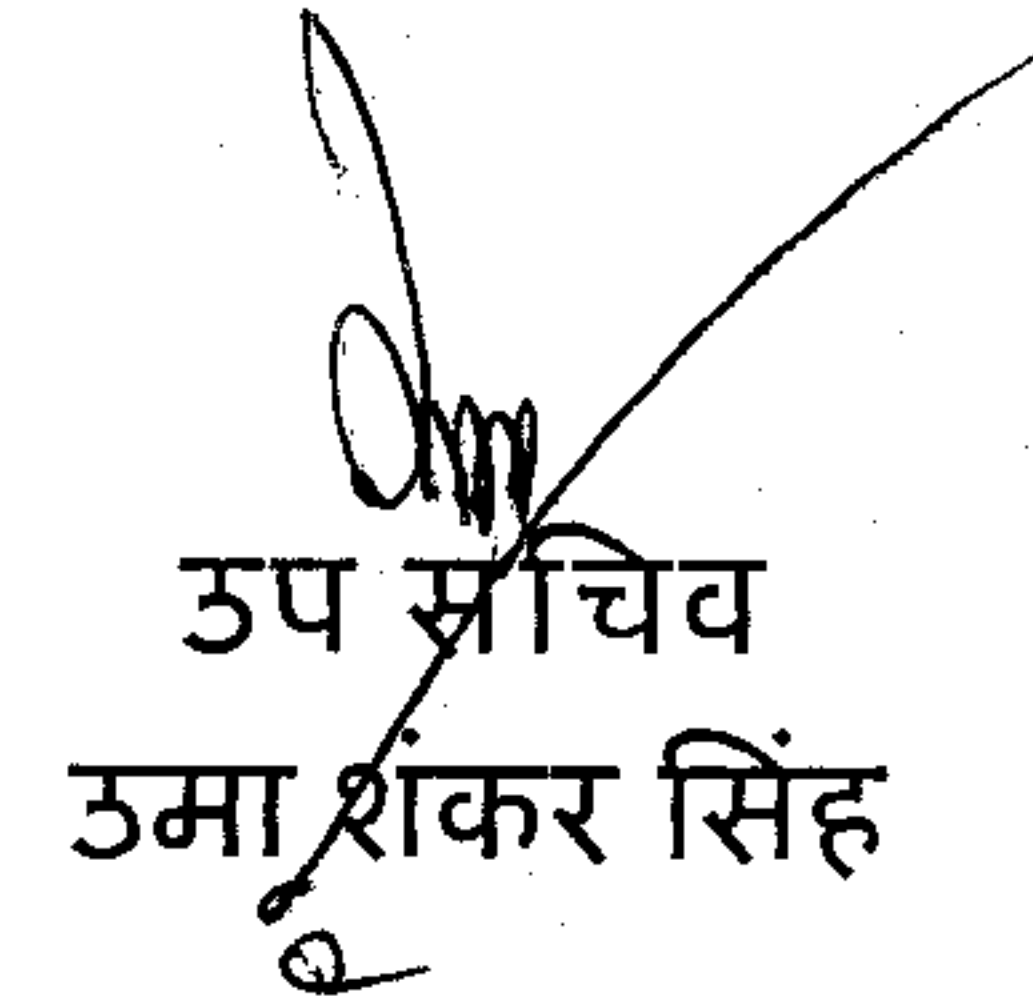 उप सचिव
उमा शंकर सिंह